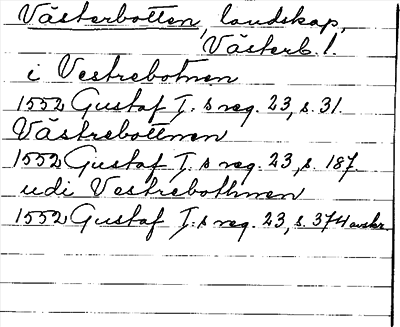 Västerbotten, landskap,
Västerb. l.
i Vestrebotnen
1552 Gustaf I:s reg. 23, s. 31.
Västrebottnen
1552 Gustaf I:s reg. 23, s. 187.
udi Vestrebothnen
1552 Gustaf I:s reg. 23, s. 374 avskr.